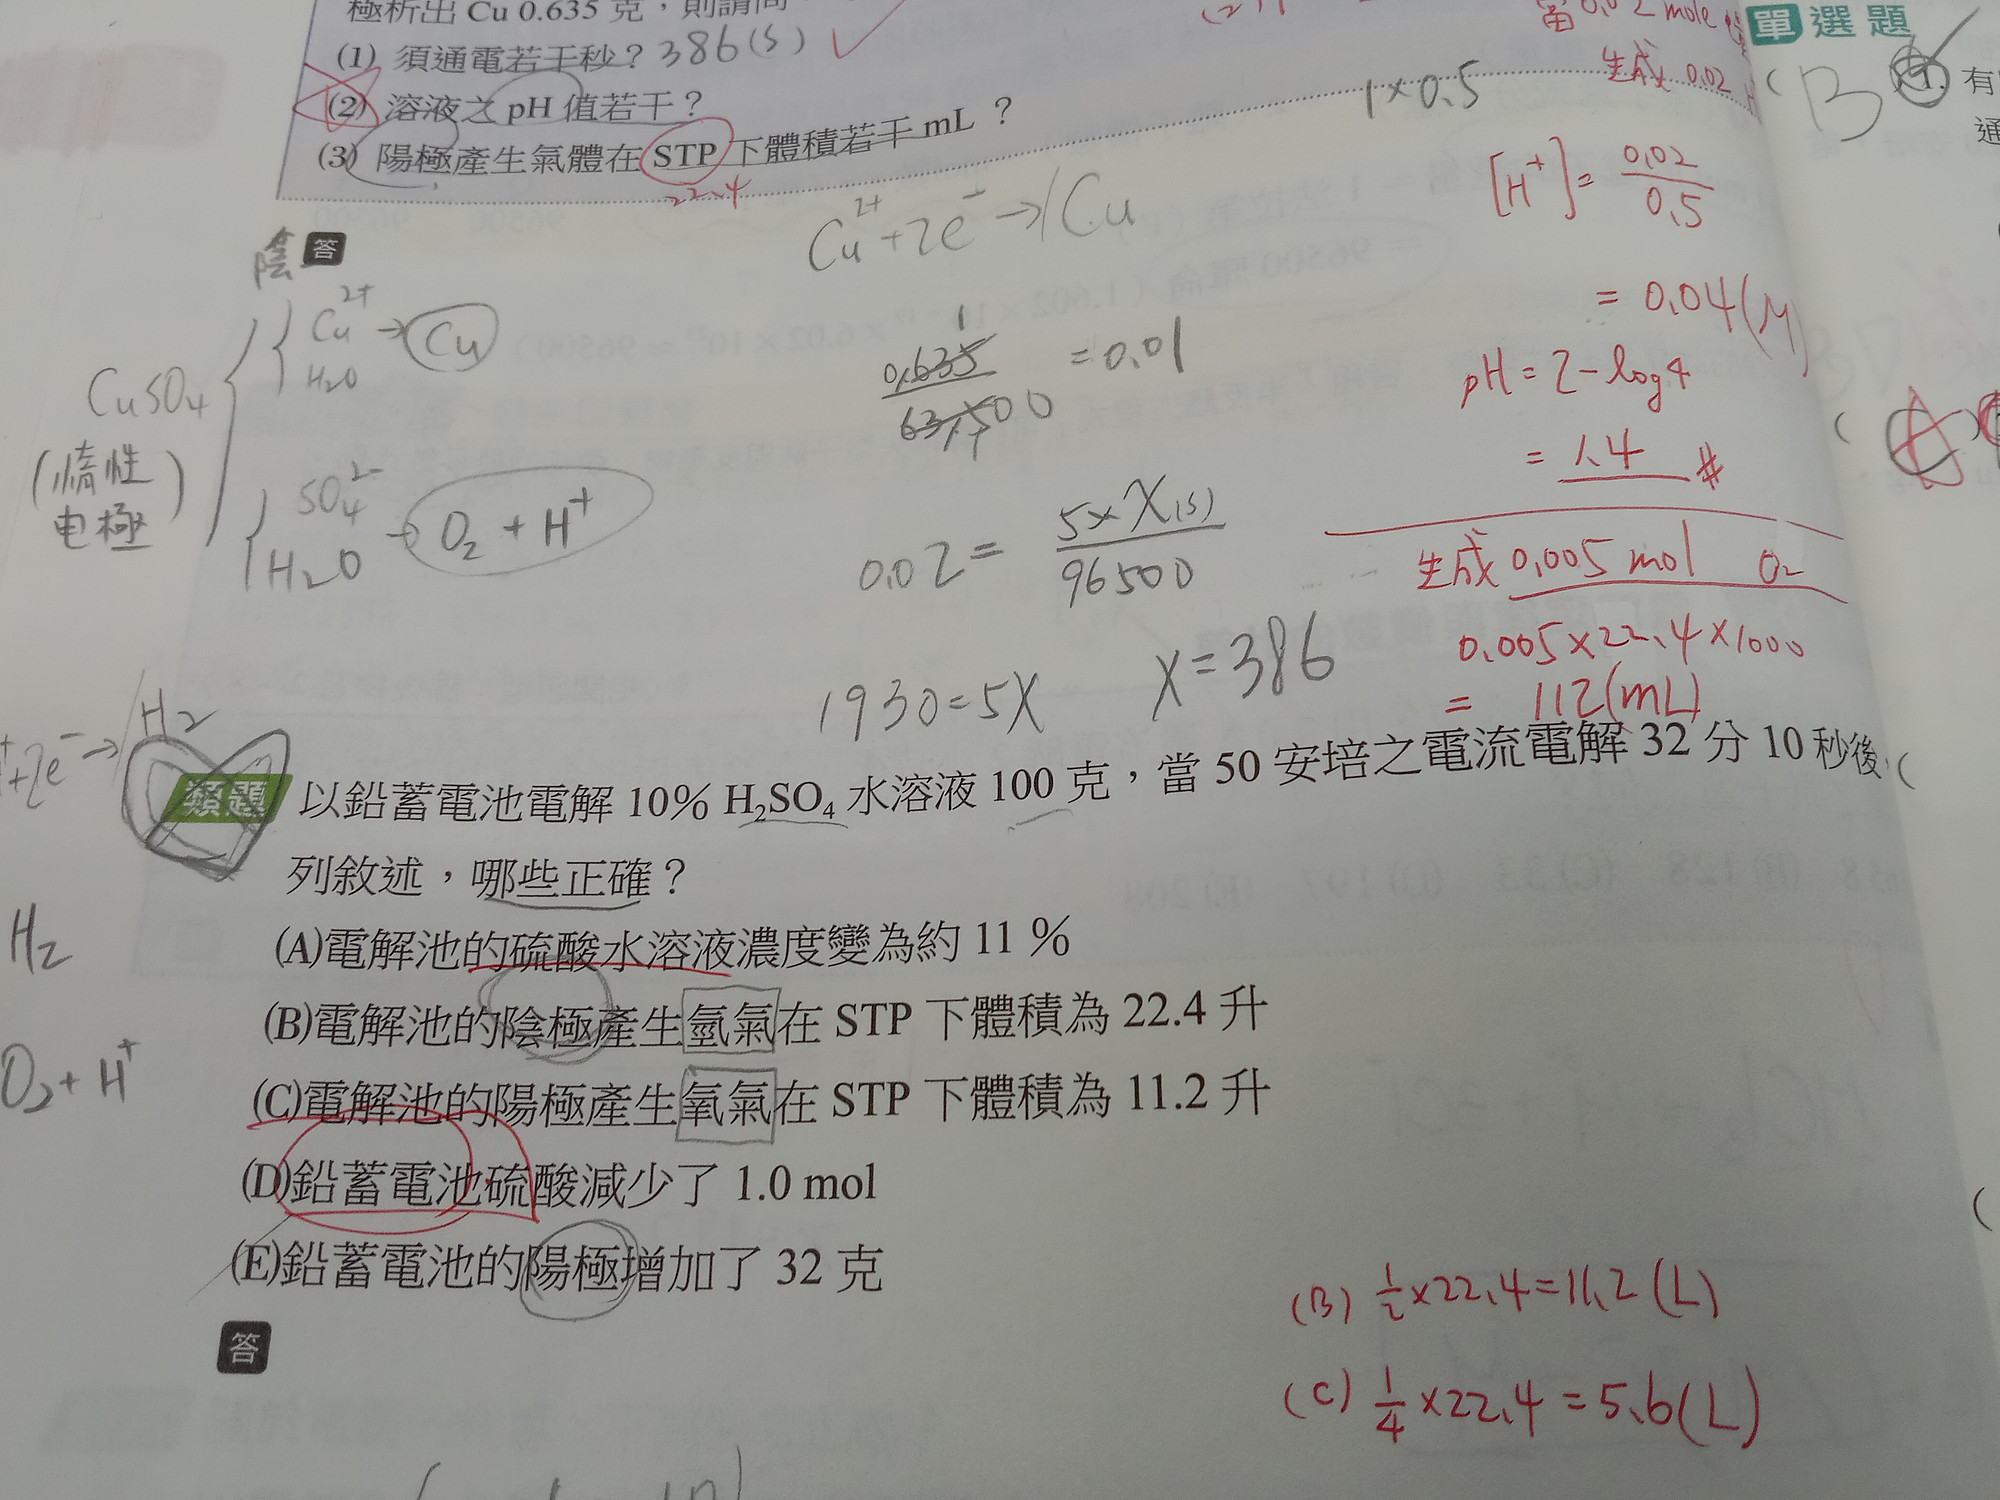 極析出 Cu 0.635 克,則請問
(1) 須通電若干秒?386(s)
(2) 溶液之 pH 值若干?
(3) 陽極產生氣體在 STP 下體積若干 mL?
22.4
當 0.02 mole
生成 0.02
1×0.5
[H⁺]=0.02/0.5
=0.04(M)
pH=2-log4
=1.4 #
生成 0.005 mol O₂
0.005×22.4×1000
=112(mL)
單選題
(B) 1. 有
通
陰 答
CuSO₄
(惰性
电極)
Cu²⁺→Cu
H₂O
SO₄²⁻
H₂O → O₂+H⁺
Cu²⁺+2e⁻→Cu
0.635/63.500=0.01
0.02=5×X(s)/96500
1930=5X X=386
+2e⁻→H₂
H₂
O₂+H⁺
類題 以鉛蓄電池電解 10% H₂SO₄ 水溶液 100 克,當 50 安培之電流電解 32 分 10 秒後,
列敘述,哪些正確?
(A)電解池的硫酸水溶液濃度變為約 11 %
(B)電解池的陰極產生氫氣在 STP 下體積為 22.4 升
(C)電解池的陽極產生氧氣在 STP 下體積為 11.2 升
(D)鉛蓄電池硫酸減少了 1.0 mol
(E)鉛蓄電池的陽極增加了 32 克
答
(B) 1/2×22.4=11.2(L)
(C) 1/4×22.4=5.6(L)